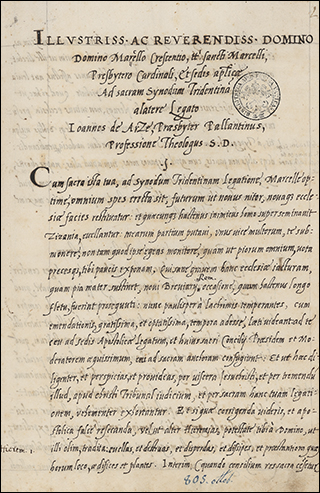 ILLVSTRISS · AC REVERENDISS · DOMINO
Domino Marcello Crescentio, tt. sancti Marcelli,
Presbytero Cardinali, et sedis aplicæ
Ad sacram Synodum Tridentinā
alatere Legato
Ioannes de Arze, Præsbyter Pallantinus,
Professione Theologus S. D.
Cum sacra ista tua, ad Synodum Tridentinam Legatione, Marcelle op
time, omnium spes erecta sit, futurum ut novus nitor, novaq; eccle
siæ facies restituatur: et quæcunq; hactenus inimicus homo superseminavit
Zizania, evellantur: mearum partium putavi, unus vice multorum, te sub
monere, non tam quod ipse egeas monitore, quam ut piorum omnium, vota
precesq; tibi paucis exponam. hanc ecclesiæ
quin pia mater subinet, novi Breviarij occasione, quam hactenus longo
fletu, fuerint prosequuti: nunc paulispera lachrimis temperantes, cum
emendationis, gratissima, et optatissima, tempora adesse, læti videant ad te
ceu ad sedis Apostolicæ Legatum, et huius sacri Concilij Præsidem et Mo
deratorem æquissimum, ceu ad sacram anchoram confugiunt. Et ut hæc di
ligenter, et perspicias, et provideas, per viscera Iesu christi, et per tremendū
illud, apud christi Tribunal iudicium, et per sacram hanc tuam legati
onem, vehementer exhortantur. Et siquæ corrigenda videris, et apo
stolica falce resecanda, velut alter Hieremias, potestate tibi a Domino, ut
illi olim, tradita: evellas, et destruas, et disperdas, et dissipes, et
berum loco, ædifices et plantes. Interim (quando consilium res sacra
805. ellot.